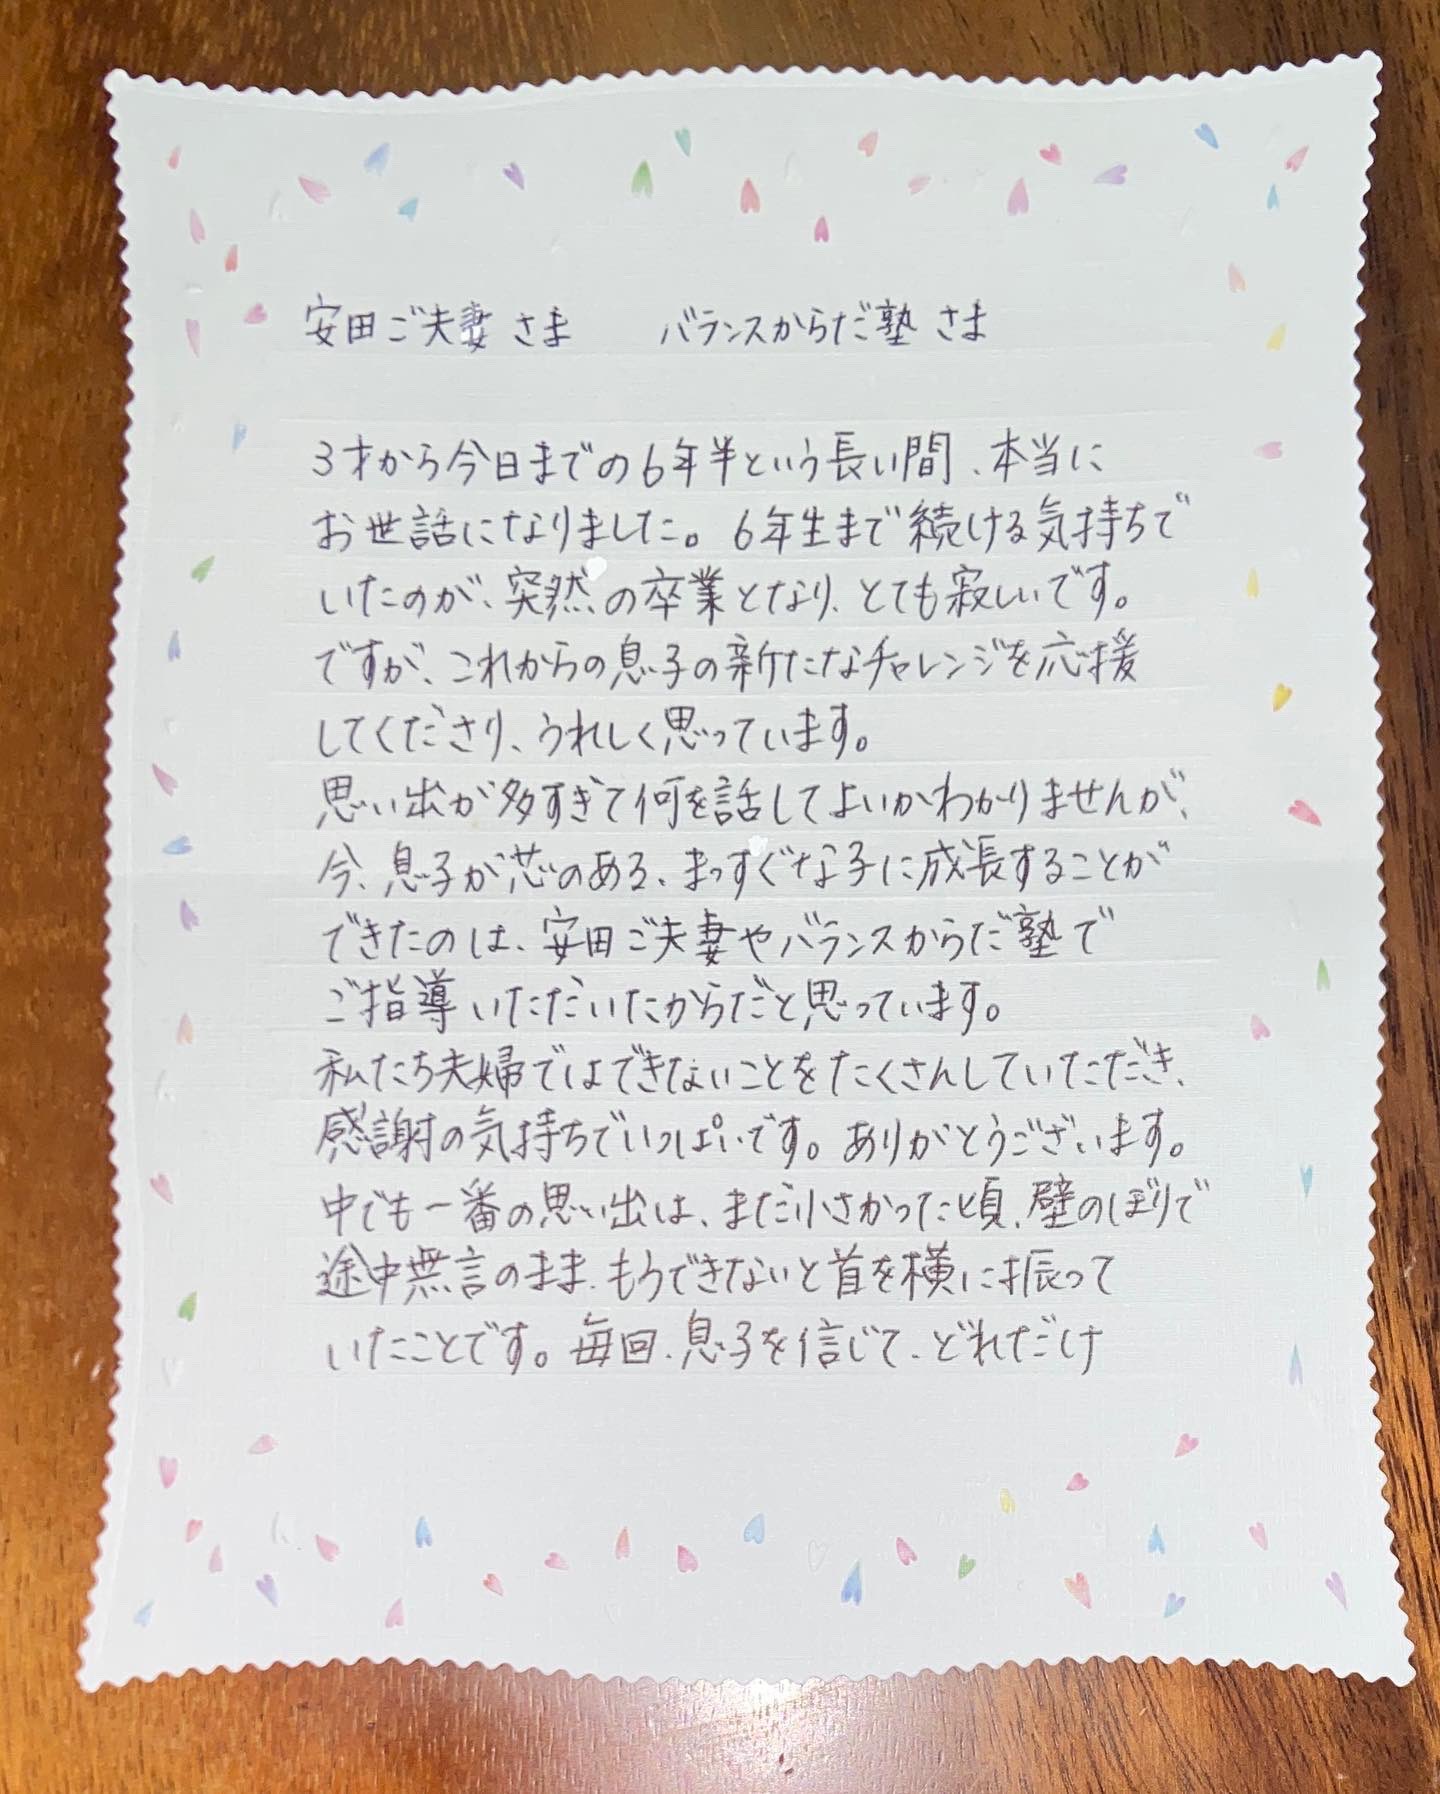 安田ご夫妻さま　バランスからだ塾さま
3才から今日までの6年半という長い間、本当に
お世話になりました。6年生まで続ける気持ちで
いたのが、突然の卒業となり、とても寂しいです。
ですが、これからの息子の新たなチャレンジを応援
してくださり、うれしく思っています。
思い出が多すぎて何を話してよいかわかりませんが、
今、息子が芯のある、まっすぐな子に成長することが
できたのは、安田ご夫妻やバランスからだ塾で
ご指導いただいたからだと思っています。
私たち夫婦ではできないことをたくさんしていただき、
感謝の気持ちでいっぱいです。ありがとうございます。
中でも一番の思い出は、まだ小さかった頃、壁のぼりで
途中無言のまま、もうできないと首を横に振って
いたことです。毎回、息子を信じて、どれだけ